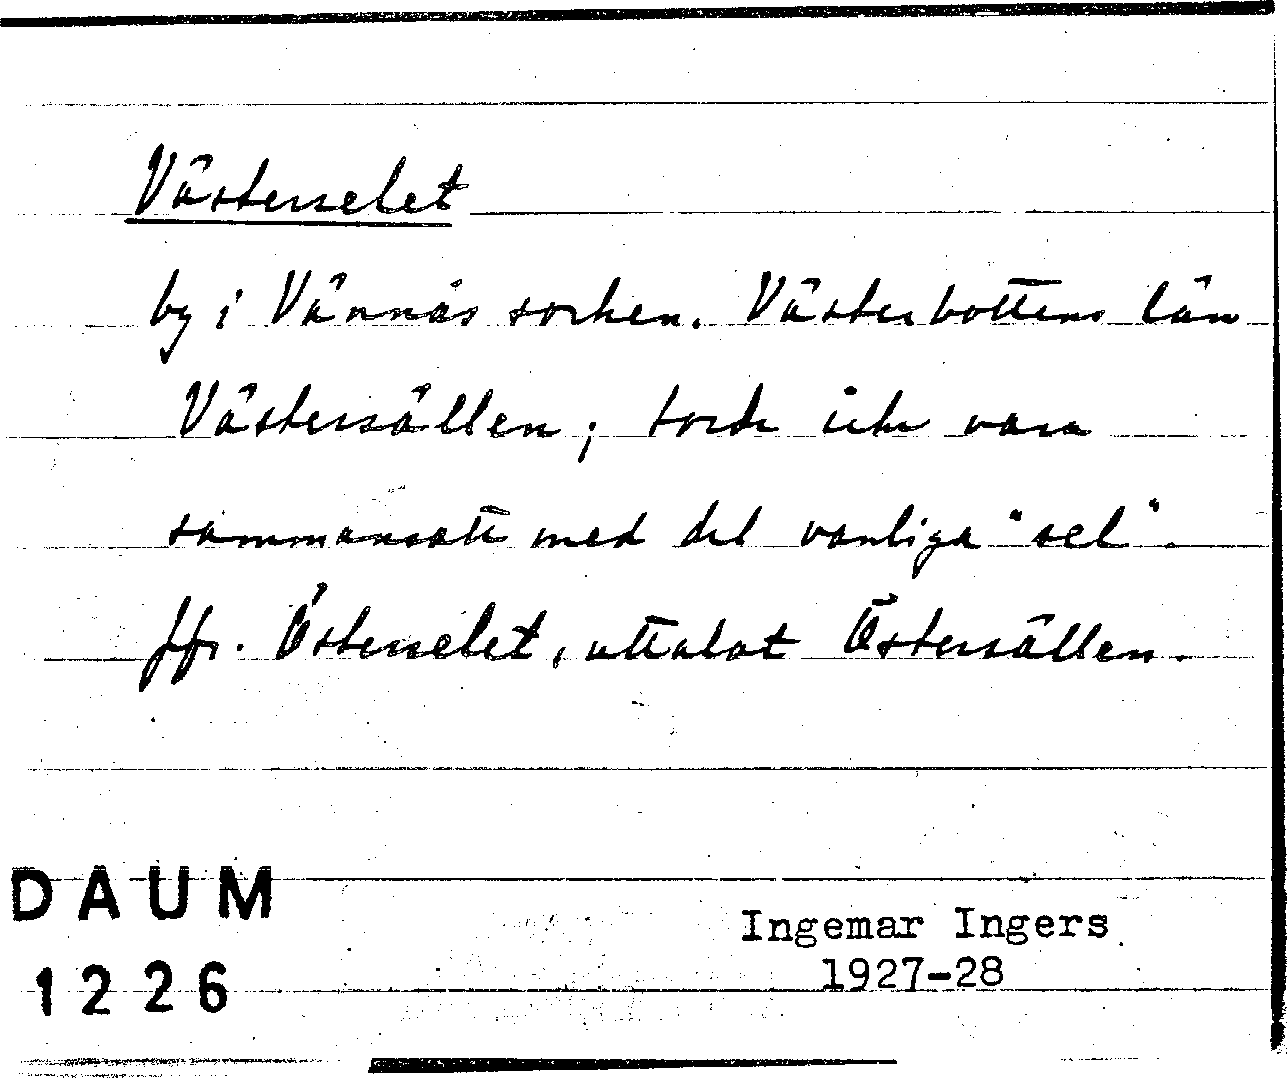 Västerselet
by i Vännäs socken. Västerbottens län
Västersällen; torde icke vara
sammansatt med det vanliga "sel".
Jfr. Österselet, uttalat Östersällen.
DAUM
1226
Ingemar Ingers
1927-28